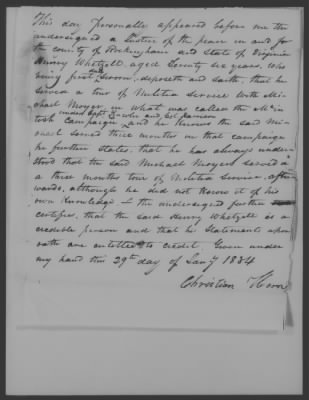 This day personally appeared before me the
undersigned a Justice of the peace in and for
the county of Rockingham and State of Virginia
Henry Whetzell aged Seventy six years, who
being first duly Sworn, deposeth and Saith, that he
served a tour of Militia service with Mi-
chael Moyer, in what was called the McIn
tosh Campaign under Capt and Col Harrison and he knows the said Mi-
chael served three months in that campaign
he further States, that he has always under-
stood that the said Michael Moyers served a
a three months tour of Militia Service, after
wards, although he did not know it of his
own knowledge & the undersigned further
certifies, that the said Henry Whetzell is a
credible person and that his Statements upon
oath are entitled to credit. Given under
my hand this 29th day of Jany 1834
Christian